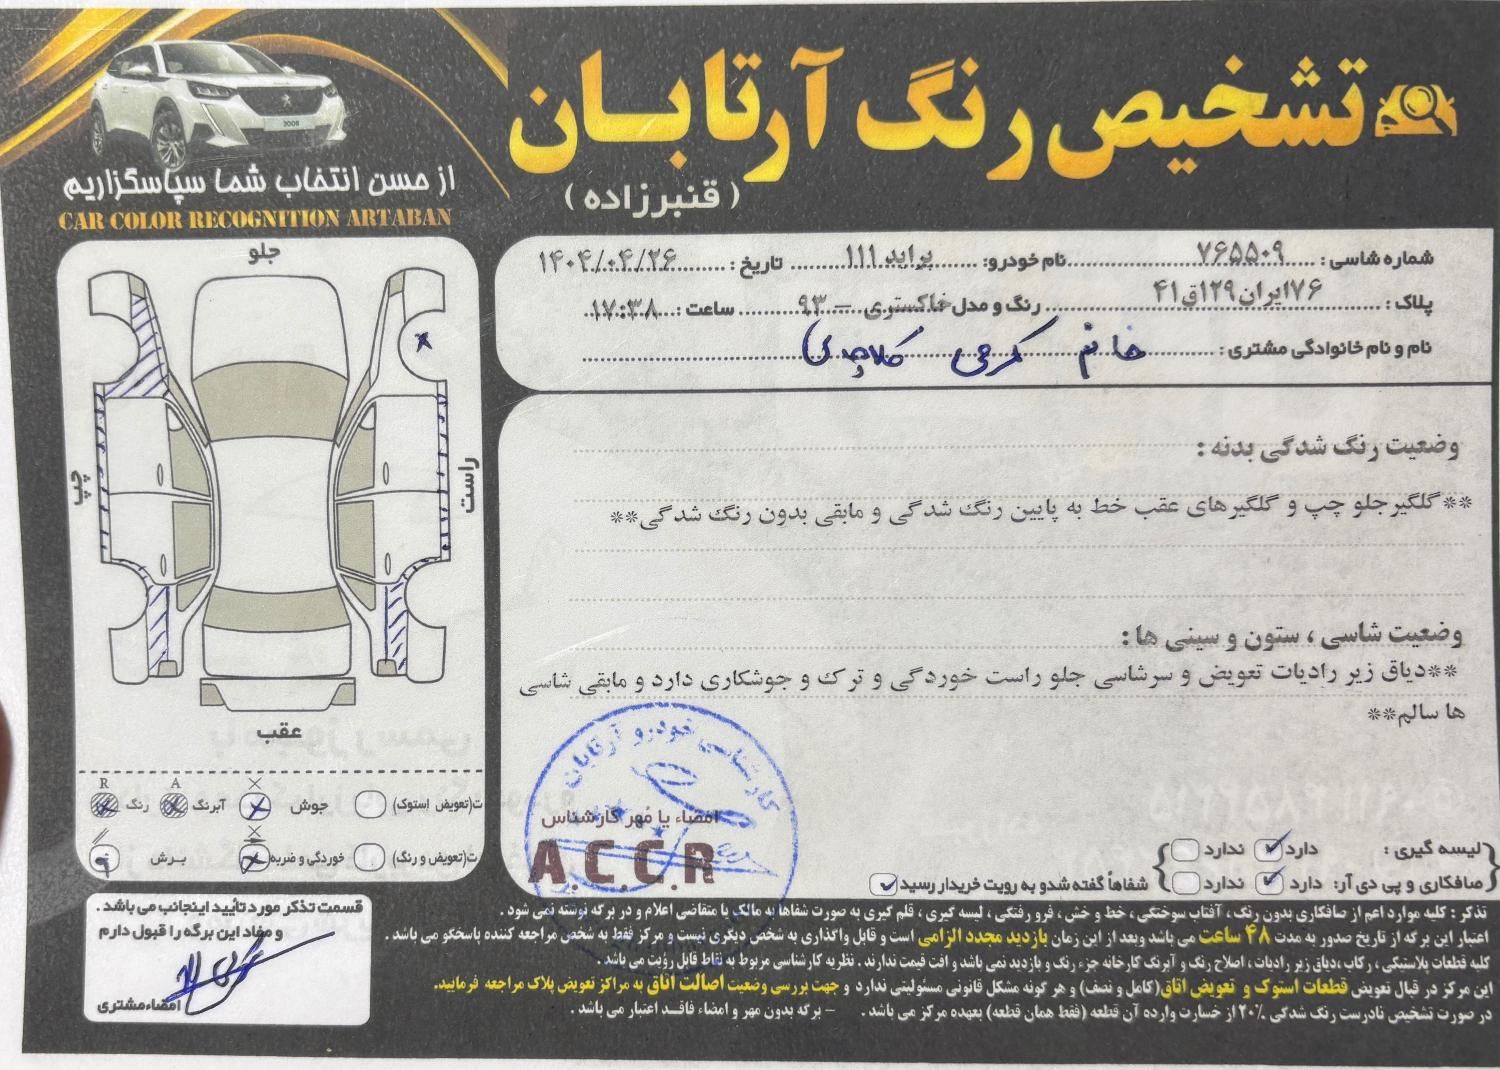 تشخیص رنگ آرتابان
( قنبرزاده )
از حسن انتخاب شما سپاسگزاریم
CAR COLOR RECOGNITION ARTABAN
3008
شماره شاسی : ۷۶۵۵۰۹ نام خودرو: پراید ۱۱۱ تاریخ : ۱۴۰۴/۰۴/۲۶
پلاک : ۷۶ایران۱۲۹ق۴۱ رنگ و مدل خاکستری – ۹۳ ساعت : ۱۷:۳۸
نام و نام خانوادگی مشتری : خانم کرمی کلاچای
وضعیت رنگ شدگی بدنه :
**گلگیرجلو چپ و گلگیرهای عقب خط به پایین رنگ شدگی و مابقی بدون رنگ شدگی**
وضعیت شاسی ، ستون و سینی ها :
**دیاق زیر رادیات تعویض و سرشاسی جلو راست خوردگی و ترک و جوشکاری دارد و مابقی شاسی
ها سالم**
جلو
چپ
راست
عقب
R A ×
رنگ آبرنگ جوش ت(تعویض استوک)
برش خوردگی و ضربه ت(تعویض و رنگ)
کارشناسی خودرو آرتابان
امضاء یا مُهر کارشناس
A.C.C.R
لیسه گیری : دارد ندارد
صافکاری و پی دی آر: دارد ندارد
شفاهاً گفته شدو به رویت خریدار رسید
قسمت تذکر مورد تأیید اینجانب می باشد .
و مفاد این برگه را قبول دارم
امضاء مشتری
تذکر : کلیه موارد اعم از صافکاری بدون رنگ ، آفتاب سوختگی ، خط و خش ، فرو رفتگی ، لیسه گیری ، قلم گیری به صورت شفاها به مالک یا متقاضی اعلام و در برگه نوشته نمی شود .
اعتبار این برگه از تاریخ صدور به مدت ۴۸ ساعت می باشد وبعد از این زمان بازدید مجدد الزامی است و قابل واگذاری به شخص دیگری نیست و مرکز فقط به شخص مراجعه کننده پاسخگو می باشد .
کلیه قطعات پلاستیکی ، رکاب ،دیاق زیر رادیات ، اصلاح رنگ و آبرنگ کارخانه جزء رنگ و بازدید نمی باشد و افت قیمت ندارند . نظریه کارشناسی مربوط به نقاط قابل رؤیت می باشد .
این مرکز در قبال تعویض قطعات استوک و تعویض اتاق(کامل و نصف) و هر گونه مشکل قانونی مسئولیتی ندارد و جهت بررسی وضعیت اصالت اتاق به مراکز تعویض پلاک مراجعه فرمایید.
در صورت تشخیص نادرست رنگ شدگی ۲۰٪ از خسارت وارده آن قطعه (فقط همان قطعه) بعهده مرکز می باشد . – برگه بدون مهر و امضاء فاقد اعتبار می باشد .